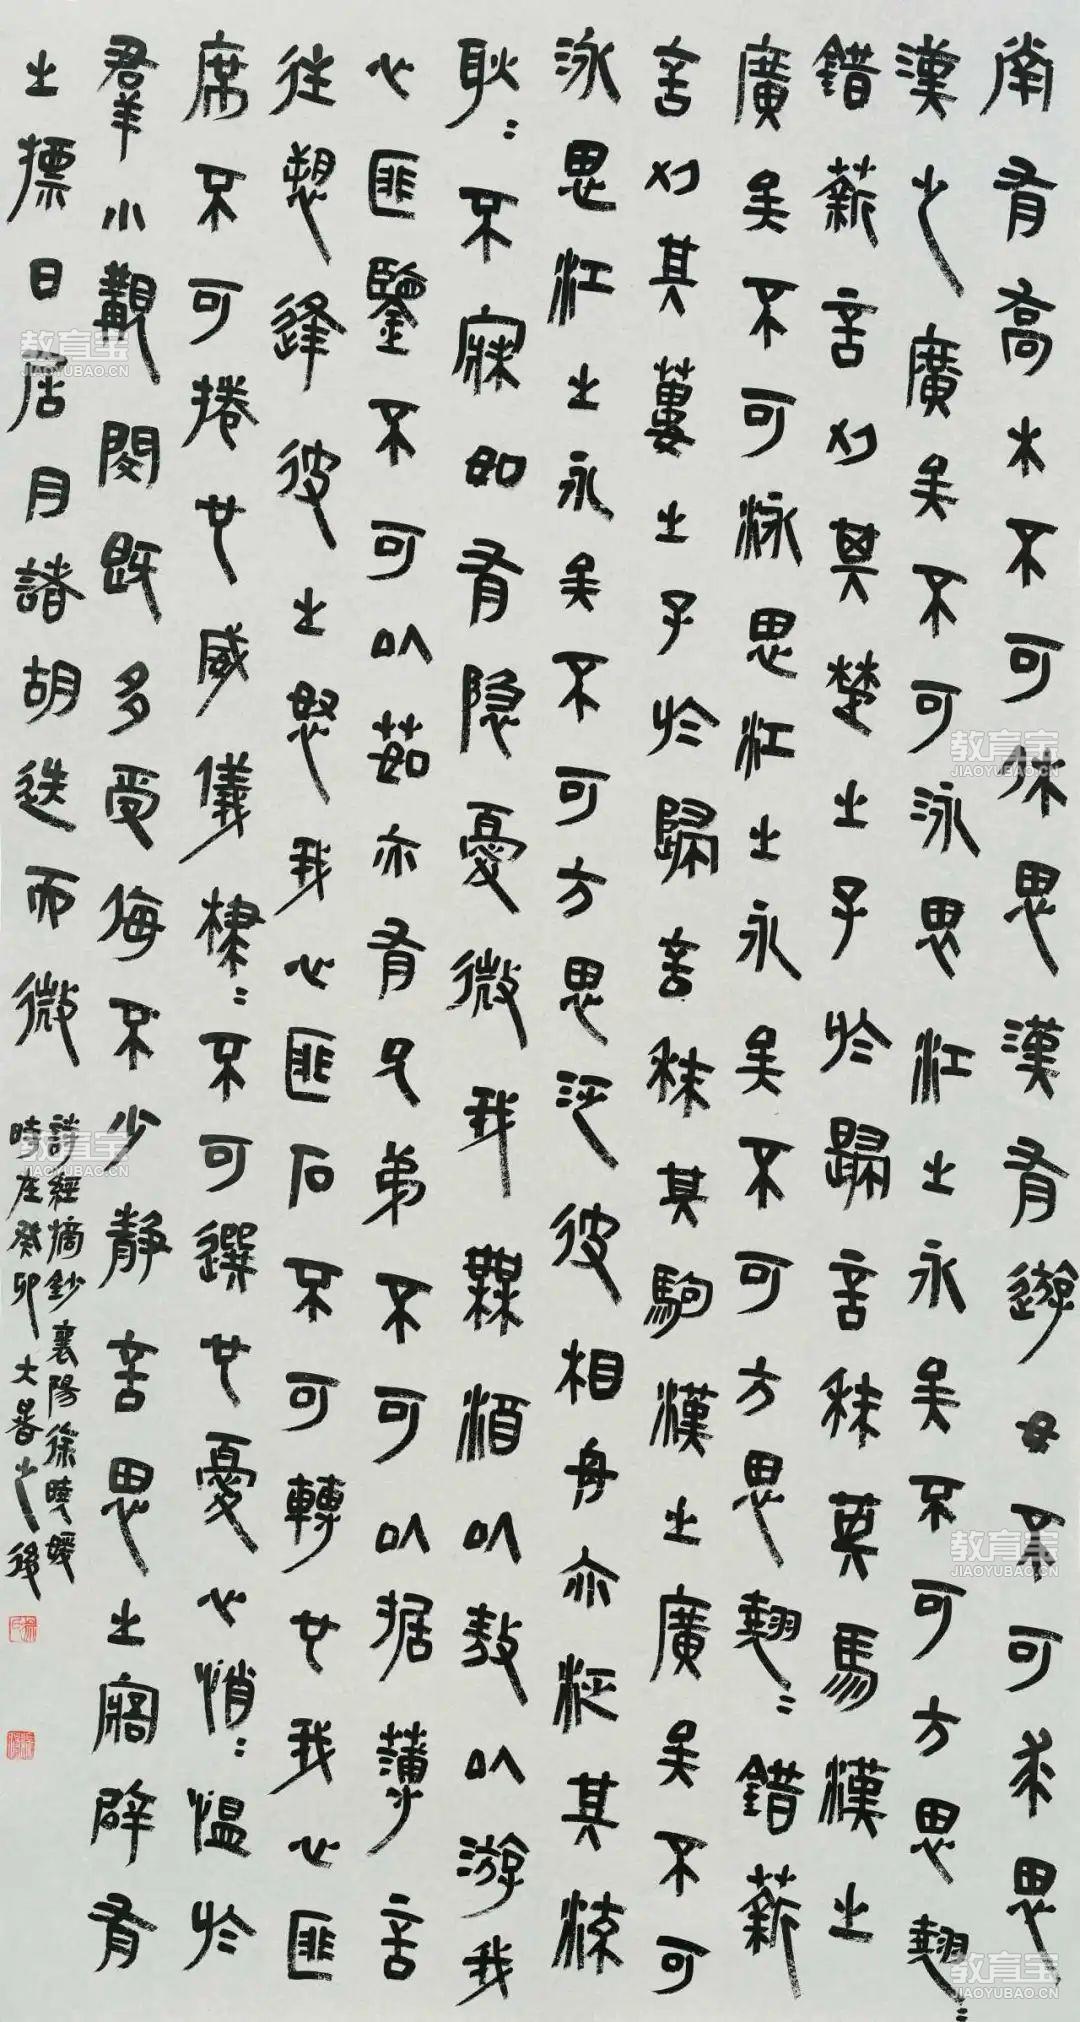 南有喬木不可休思漢有遊女不可求思
漢之廣矣不可泳思江之永矣不可方思翹〻
錯薪言刈其楚之子於歸言秣其馬漢之
廣矣不可泳思江之永矣不可方思翹〻錯薪
言刈其蔞之子於歸言秣其駒漢之廣矣不可
泳思江之永矣不可方思泛彼柏舟亦泛其流
耿〻不寐如有隱憂微我無酒以敖以游我
心匪鑒不可以茹亦有兄弟不可以据薄言
往愬逢彼之怒我心匪石不可轉也我心匪
席不可捲也威儀棣〻不可選也憂心悄〻慍於
羣小覯閔既多受侮不少靜言思之寤辟有
之摽日居月諸胡迭而微
詩經摘鈔襄陽徐曉媛
時在癸卯大暑之後
教育宝
JIAOYUBAO.CN
教育宝
JIAOYUBAO.CN
教育宝
JIAOYUBAO.CN
教育宝
JIAOYUBAO.CN
教育宝
JIAOYUBAO.CN